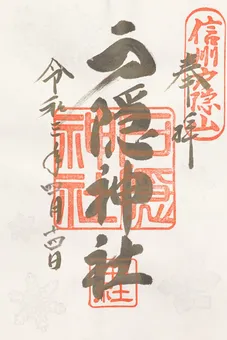 信州戸隠山
奉拝
戸隠神社
戸隠
神社
令和三年四月十四日